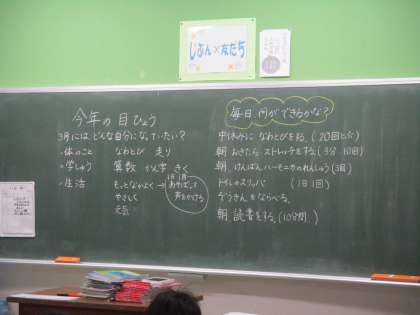 じぶん×友だち
今年の目ひょう
3月には、どんな自分になっていたい?
・体のこと なわとび 走り
・学しゅう 算数 かん字 きく
・生活 もっとなかよく→
やさしく
元気
1日1回
あそぼって
声をかける
毎日何ができるかな?
中休みに なわとびをする。(20回とぶ)
朝 おきたら ストレッチをする。(3分 10回)
朝 けんばんハーモニカのれんしゅう(3回)
トイレのスリッパ (1日1回)
ぞうきんをならべる。
朝 読書をする。(10分間)